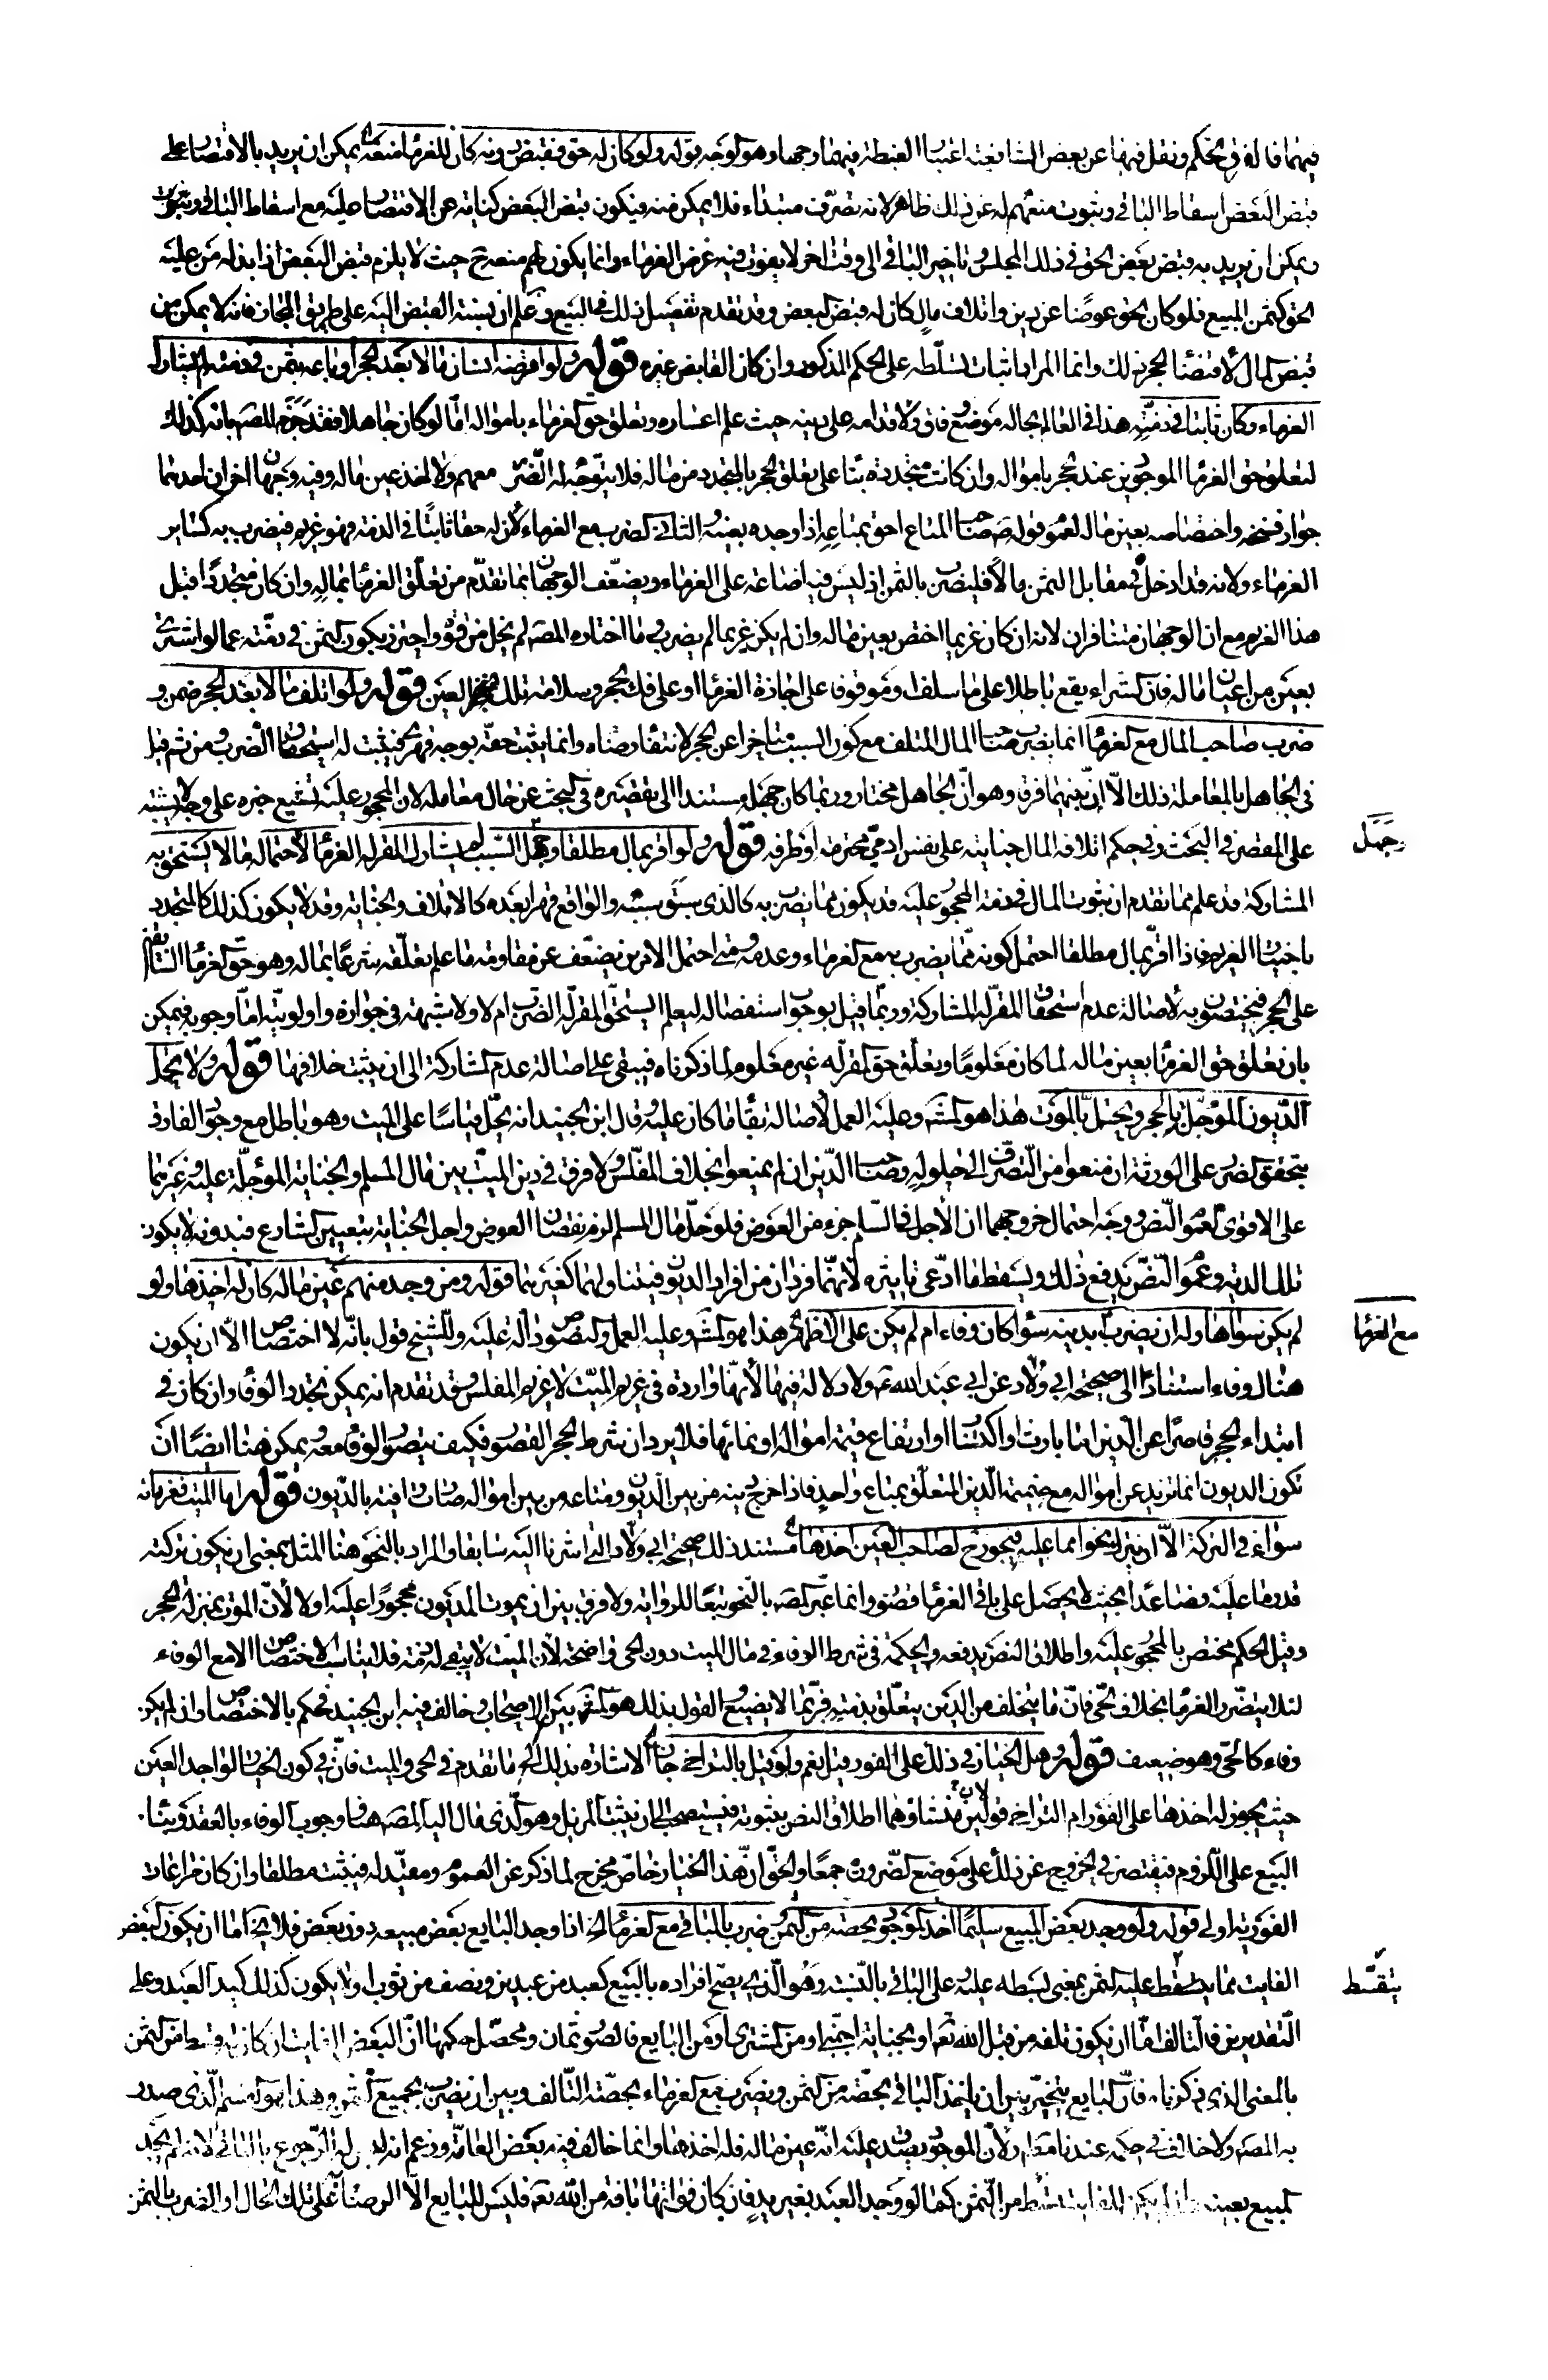 فيهما قاله في الحكم ونقل فيها عن بعض الشافعية اعتبار الغبطة فيهما وجها وهو لا وجه قوله ولو كان له حق فقبض دونه كان للغرماء منعه يمكن ان يريد بالاقتصار على
قبض البعض اسقاط الباقي وثبوت منعهم له عن ذلك ظاهر لانه تصرف مبتداء فلا يمكن منه فيكون قبض البعض كناية عن الاقتصار عليه مع اسقاط الباقي
ويمكن ان يريد به قبض بعض الحق في ذلك المجلس وتاخير الباقي الى وقت اخر لا يفوت فيه غرض الغرماء وانما يكون لهم منعه ح حيث لا يلزم قبض البعض اذا بذله من عليه
الحق كثمن المبيع فلو كان الحق عوضا عن دين واتلاف مال كان له قبض البعض وقد تقدم تفصيل ذلك في البيع واعلم ان نسبة القبض اليه على طريق المجاز فانه لا يمكن من
قبض المال لاقتضاء الحجر ذلك وانما المراد اثبات تسلطه على الحكم المذكور وان كان القابض غيره قوله ولو اقرضه انسان مالا بعد الحجر او باعه بثمن في ذمته لم يشارك
الغرماء وكان ثابتا في ذمته هذا في العالم بحاله موضع وفاق ولاقدامه على دينه حيث علم اعساره وتعلق حق الغرماء بامواله اما لو كان جاهلا فقد جزم المصـ بانه كذلك
لتعلق حق الغرماء الموجودين عند الحجر بامواله وان كانت متجددة بناء على تعلق الحجر بالمتجدد من ماله فلا يتوجه له الضرب معهم ولا اخذ عين ماله وفيه وجهان اخران احدهما
جواز فسخه واختصاصه بعين ماله لعموم قوله ص صاحب المتاع احق بمتاعه اذا وجده بعينه والثاني الضرب مع الغرماء لان له حقا ثابتا في الذمة وهو غريم فيضرب به كساير
الغرماء ولانه قد ادخل في مقابل الثمن مالا فليضرب بالثمن اذ ليس فيه اضاعة على الغرماء ويضعف الوجهان بما تقدم من تعلق الغرماء بماله وان كان متجددا قبل
هذا الغريم مع ان الوجهان متنافران لانه ان كان غريما اختص بعين ماله وان لم يكن غريما لم يضرب وما اختاره المصـ لم يخل من قوة واحترز بكون الثمن في ذمته عما لو اشترى
بعين من اعيان ماله فان الشراء يقع باطلا على ما سلف او موقوفا على اجازة الغرماء او على فك الحجر وسلامة تلك العين قوله ولو اتلف مالا بعد الحجر ضمن و
ضرب صاحب المال مع الغرماء انما يضرب صاحب المال المتلف مع كون السبب متاخرا عن الحجر لانتفاء رضاه وانما يثبت حقه بوجه قهري فيثبت له استحقاق الضرب ومن ثم قيل
في الجاهل بالمعاملة ذلك الا ان بينهما فرق وهو ان الجاهل مختار وربما كان جهله مستندا الى تقصيره في البحث عن حال معامله لان المحجور عليه تشيع خبره على وجه لا يشتبه
على المقصر في البحث وفي حكم اتلافه المال جنايته على نفس ادمي محترمة او طرفه قوله ولو اقر بمال مطلقا وجهل السبب لم يشارك المقر له الغرماء لاحتماله ما لا يستحق به
المشاركة قد علم مما تقدم ان ثبوت المال في ذمة المحجور عليه قد يكون مما يضرب به كالذي سبق سببه والواقع قهرا بعده كالاتلاف والجناية وقد لا يكون كذلك كالمتجدد
باختيار الغريم فاذا اقر بمال مطلقا احتمل كونه مما يضرب به مع الغرماء وعدمه ومتى احتمل الامرين يضعف عن مقاومة ما علم تعلقه شرعا بماله وهو حق الغرماء السابق
على الحجر فيختصون به لاصالة عدم استحقاق المقر له المشاركة وربما قيل بوجوب استفصاله ليعلم ايستحق المقر له الضرب ام لا ولا شبهة في جوازه واولويته اما وجوبه فيمكن
بان تعلق حق الغرماء بعين ماله لما كان معلوما وتعلق حق المقر له غير معلوم لما ذكرناه فيبقى على اصالة عدم المشاركة الى ان يثبت خلافها قوله ولا يحل
الديون المؤجلة بالحجر ويحتمل بالموت هذا هو المشـ وعليه العمل لاصالة بقاء ما كان عليه وقال ابن الجنيد انه يحل قياسا على الميت وهو باطل مع وجود الفارق
بتحقق الضرر على الورثة ان منعوا من التصرف الى حلوله وصاحب الدين ان لم يمنعوا بخلاف المفلس ولا فرق في دين الميت بين مال السلم والجناية المؤجلة عليه وغيرهما
على الاقوى لعموم النص ووجه احتمال خروجهما ان الاجل في السلم جزء من العوض فلو حل مال السلم لزم نقصان العوض واجل الجناية بتعيين الشارع فبدونه لا يكون
تلك الدية وعموم النص يدفع ذلك ويسقط ما ادعى تاثيره لانهما فردان من افراد الديون فيتناولهما كغيرهما قوله ومن وجد منهم عين ماله كان له اخذها ولو
لم يكن سواها وله ان يضرب بدينه سواء كان وفاء ام لم يكن على الاظهر هذا هو المشـ وعليه العمل والنصوص دالة عليه وللشيخ قول بانه لا اختصاص الا ان يكون
هناك وفاء استنادا الى صحيحة ابي ولاد عن ابي عبد الله ع ولا دلالة فيها لانها واردة في غريم الميت لا غريم المفلس وقد تقدم انه يمكن تجدد الوفاء وان كان في
ابتداء الحجر قاصرا عن الدين اما بارث او اكتساب او ارتفاع قيمة امواله او نمائها فلا يرد ان شرط الحجر القصور فكيف يتصور الوفاء معه ويمكن هنا ايضا ان
تكون الديون انما تزيد عن امواله مع ضميمة الدين المتعلق بمتاع واحد فاذا خرج دينه من بين الديون ومتاعه من بين امواله صارت وافية بالديون قوله اما الميت فغرماؤه
سواء في التركة الا ان يترك نحوا مما عليه فيجوز ح لصاحب العين اخذها مستند ذلك صحيحة ابي ولاد التي اشرنا اليه سابقا والمراد بالنحو هنا المثل بمعنى ان يكون تركته
قدر ما عليه فصاعدا بحيث لا يحصل على باقي الغرماء قصور وانما عبر المصـ بالنحو تبعا للرواية ولا فرق بين ان يموت المديون محجورا عليه او لا لان الموت بمنزلة الحجر
وقيل الحكم مختص بالمحجور عليه واطلاق النص يدفعه والحكمة في شرط الوفاء في مال الميت دون الحي واضحة لان الميت لا يبقى له ذمة فلا يناسب الاختصاص الا مع الوفاء
لئلا يتضرر الغرماء بخلاف الحي فان ما يتخلف من الدين يتعلق بذمته فربما لا يضيع والقول بذلك هو المشهور بين الاصحاب وخالف فيه ابن الجنيد فحكم بالاختصاص وان لم يكن
وفاء كالحي وهو ضعيف قوله وهل الخيار في ذلك على الفور قيل نعم ولو قيل بالتراخي جاز الاشارة بذلك الى ما تقدم في الحي والميت فان في كون الخيار لواجد العين
حيث يجوز له اخذها على الفور ام التراخي قولين منشاؤهما اطلاق النص بثبوته فيستصحب الى ان يثبت المزيل وهو الذي مال اليه المصـ هنا ووجوب الوفاء بالعقد وبناء
البيع على اللزوم فيقتصر في الخروج عن ذلك على موضع الضرورة جمعا والحق ان هذا الخيار خاص مخرج لما ذكر عن العموم ومقيد له فيثبت مطلقا وان كان مراعات
الفورية اولى قوله ولو وجد بعض المبيع سليما اخذ الموجود بحصته من الثمن وضرب بالباقي مع الغرماء الخ اذا وجد البايع بعض مبيعه دون بعض فلا يخ اما ان يكون البعض
الفايت مما يسقط عليه الثمن بمعنى بسطه عليه وعلى الباقي بالنسبة وهو الذي يصح افراده بالبيع كعبد من عبدين ونصف من ثوب او لا يكون كذلك كيد العبد وعلى
التقديرين فالتالف اما ان يكون تلفه من قبل الله تعـ او بجناية اجنبي او من المشتري او من البايع فالصور ثمان ومحصل احكمها ان البعض الفايت ان كان له قسط من الثمن
بالمعنى الذي ذكرناه فان البايع يتخير بين ان ياخذ الباقي بحصته من الثمن ويضرب مع الغرماء بحصته التالف وبين ان يضرب بجميع الثمن وهذا هو القسم الذي صدر
به المصـ ولا خلاف في حكمه عندنا ولان الموجود يصدق عليه انه عين ماله فله اخذها وانما خالف فيه بعض العامة وزعم انه ليس له الرجوع بالباقي لانه لم يجد
المبيع بعينه وان لم يكن للفايت قسط من الثمن كما لو وجد العبد بغير يد فان كان فواتها بافة من الله تعـ فليس للبايع الا الرضا على تلك الحال او الضرب بالثمن
وجهل
مع الغرماء
يتقسط